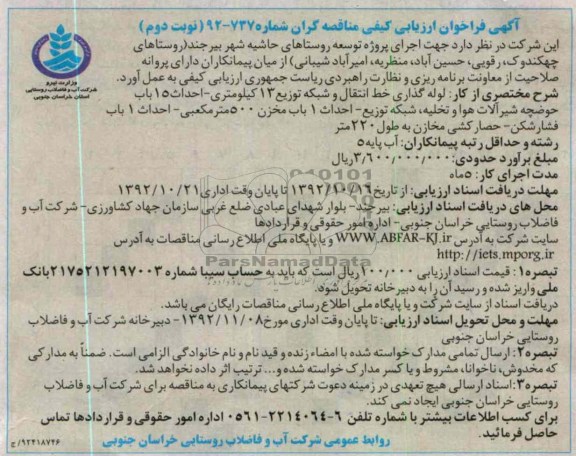 آگهی فراخوان ارزیابی کیفی مناقصه گران شماره ۷۳۷-۹۲ (نوبت دوم)
این شرکت در نظر دارد جهت اجرای پروژه توسعه روستاهای حاشیه شهر بیرجند(روستاهای
چهکندوک، رقویی، حسین آباد، منظریه، امیرآباد شیبانی) از میان پیمانکاران دارای پروانه
صلاحیت از معاونت برنامه ریزی و نظارت راهبردی ریاست جمهوری ارزیابی کیفی به عمل آورد.
شرح مختصری از کار: لوله گذاری خط انتقال و شبکه توزیع ۱۳ کیلومتری-احداث ۱۵ باب
حوضچه شیرآلات هوا و تخلیه، شبکه توزیع- احداث ۱ باب مخزن ۵۰۰ مترمکعبی- احداث ۱ باب
فشارشکن- حصارکشی مخازن به طول ۲۲۰ متر
رشته و حداقل رتبه پیمانکاران: آب پایه ۵
مبلغ برآورد حدودی: ۳/۶۰۰/۰۰۰/۰۰۰ ریال
مدت اجرای کار: ۵ ماه
مهلت دریافت اسناد ارزیابی: از تاریخ ۱۳۹۲/۱۰/۱۶ تا پایان وقت اداری ۱۳۹۲/۱۰/۲۱
محل های دریافت اسناد ارزیابی: بیرجند- بلوار شهدای عبادی ضلع غربی سازمان جهاد کشاورزی- شرکت آب و
فاضلاب روستایی خراسان جنوبی- اداره امور حقوقی و قراردادها
سایت شرکت به آدرس WWW.ABFAR-KJ.ir و یا پایگاه ملی اطلاع رسانی مناقصات به آدرس
http://iets.mporg.ir
تبصره۱: قیمت اسناد ارزیابی ۱۰۰/۰۰۰ ریال است که باید به حساب سیبا شماره ۲۱۷۵۲۱۲۱۹۷۰۰۳ بانک
ملی واریز شده و رسید آن را به دبیرخانه تحویل شود.
دریافت اسناد از سایت شرکت و یا پایگاه ملی اطلاع رسانی مناقصات رایگان می باشد.
مهلت و محل تحویل اسناد ارزیابی: تا پایان وقت اداری مورخ ۱۳۹۲/۱۱/۰۸- دبیرخانه شرکت آب و فاضلاب
روستایی خراسان جنوبی
تبصره۲: ارسال تمامی مدارک خواسته شده با امضاء زنده و قید نام و نام خانوادگی الزامی است. ضمناً به مدارکی
که مخدوش، ناخوانا، مشروط و یا کسر مدارک خواسته شده و... ترتیب اثر داده نخواهد شد.
تبصره۳: اسناد ارسالی هیچ تعهدی در زمینه دعوت شرکتهای پیمانکاری به مناقصه برای شرکت آب و فاضلاب
روستایی خراسان جنوبی ایجاد نمی کند.
برای کسب اطلاعات بیشتر با شماره تلفن ۶-۲۲۱۴۰۶۴-۰۵۶۱ اداره امور حقوقی و قراردادها تماس
حاصل فرمائید.
روابط عمومی شرکت آب و فاضلاب روستایی خراسان جنوبی
۹۲۴۱۸۷۴۶/ج
وزارت نیرو
شرکت آب و فاضلاب روستایی
استان خراسان جنوبی
ParsNamadData